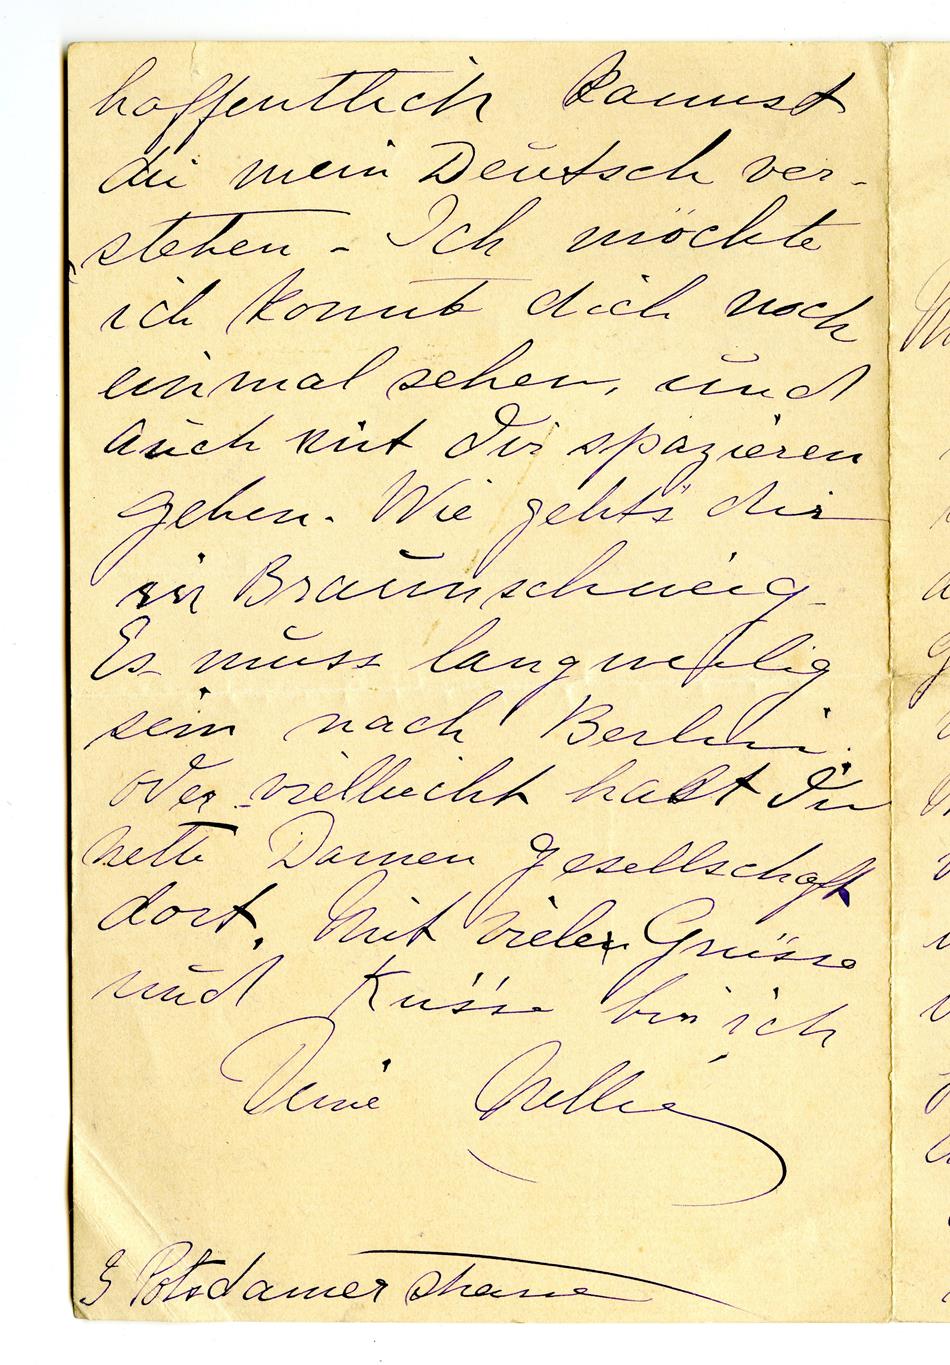 hoffentlich kannst
du mein Deutsch ver-
stehen - Ich möchte
ich konnte dich noch
einmal sehen, und
auch mit Dir spazieren
gehen. Wie geht's dir
in Braunschweig
Es muss langweilig
sein nach Berlin.
oder vielleicht hast Du
nette Damen gesellschaft
dort. Mit vielen Grüsse
und Küsse bin ich
Deine Nellie
Potsdamer strasse